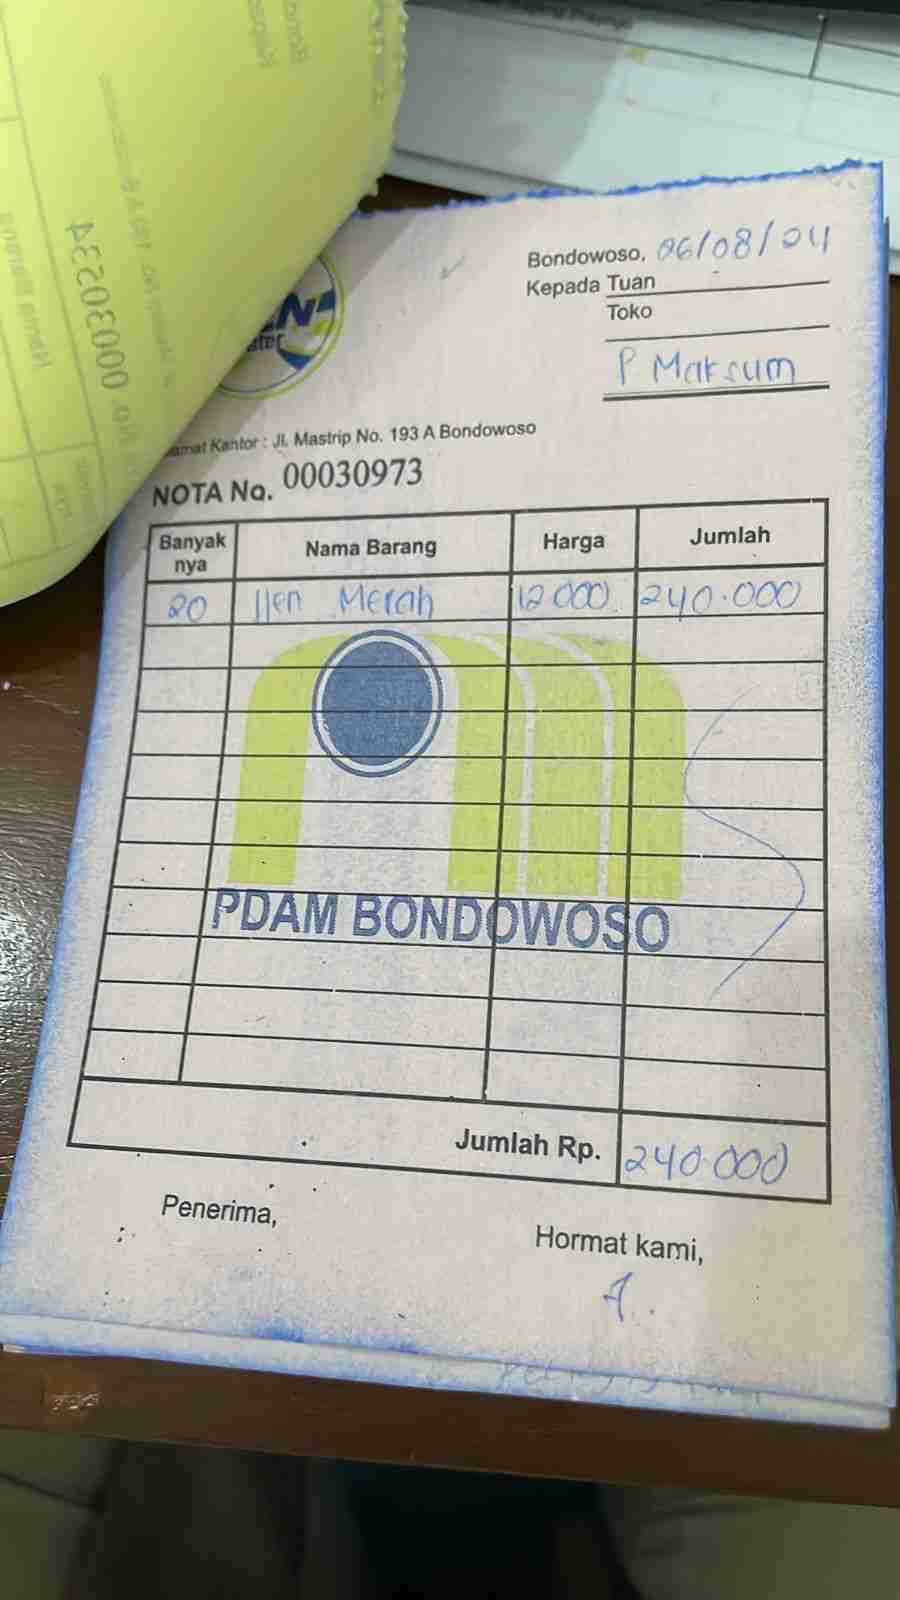 Bondowoso, 06/08/04
Kepada Tuan
Toko
P Maksum
amat Kantor : Jl. Mastrip No. 193 A Bondowoso
NOTA No. 00030973
Banyak nya Nama Barang Harga Jumlah
20 Ijen Merah 12 000 240.000
PDAM BONDOWOSO
Jumlah Rp. 240.000
Penerima,
Hormat kami,